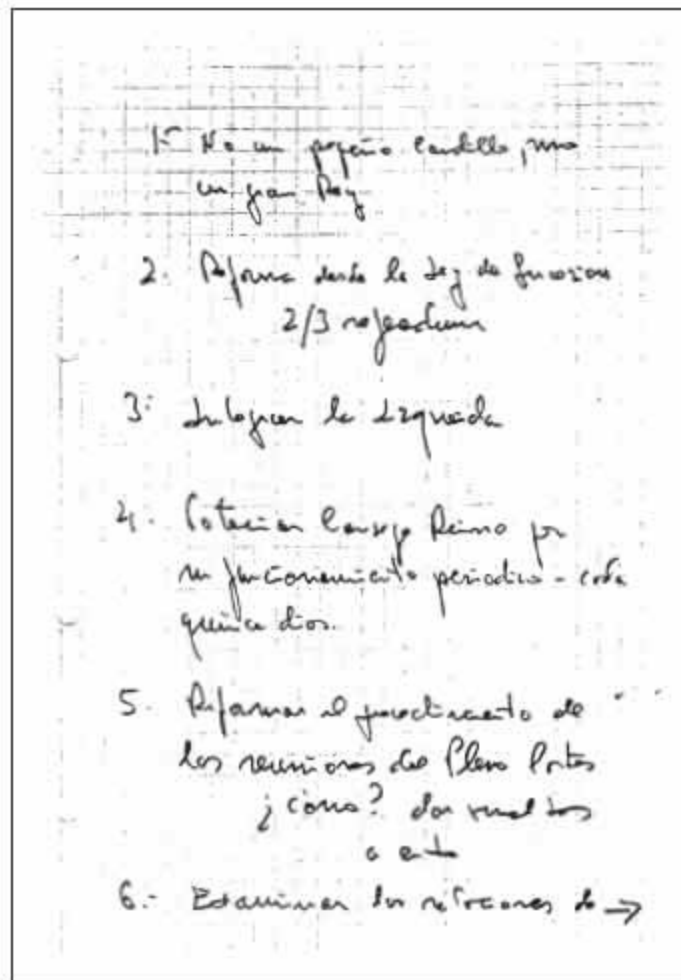 1- No un pequeño Caudillo, sino
un gran Rey
2. Reforma desde la Ley de Sucesion
2/3 referendum
3- Integrar la Izquierda
4. Potenciar Consejo Reino por
su funcionamiento periodico - cada
quince dias.
5. Reformar el procedimiento de
las reuniones del Pleno Cortes
¿como? dar vueltas
a esto
6.- Examinar las relaciones de →